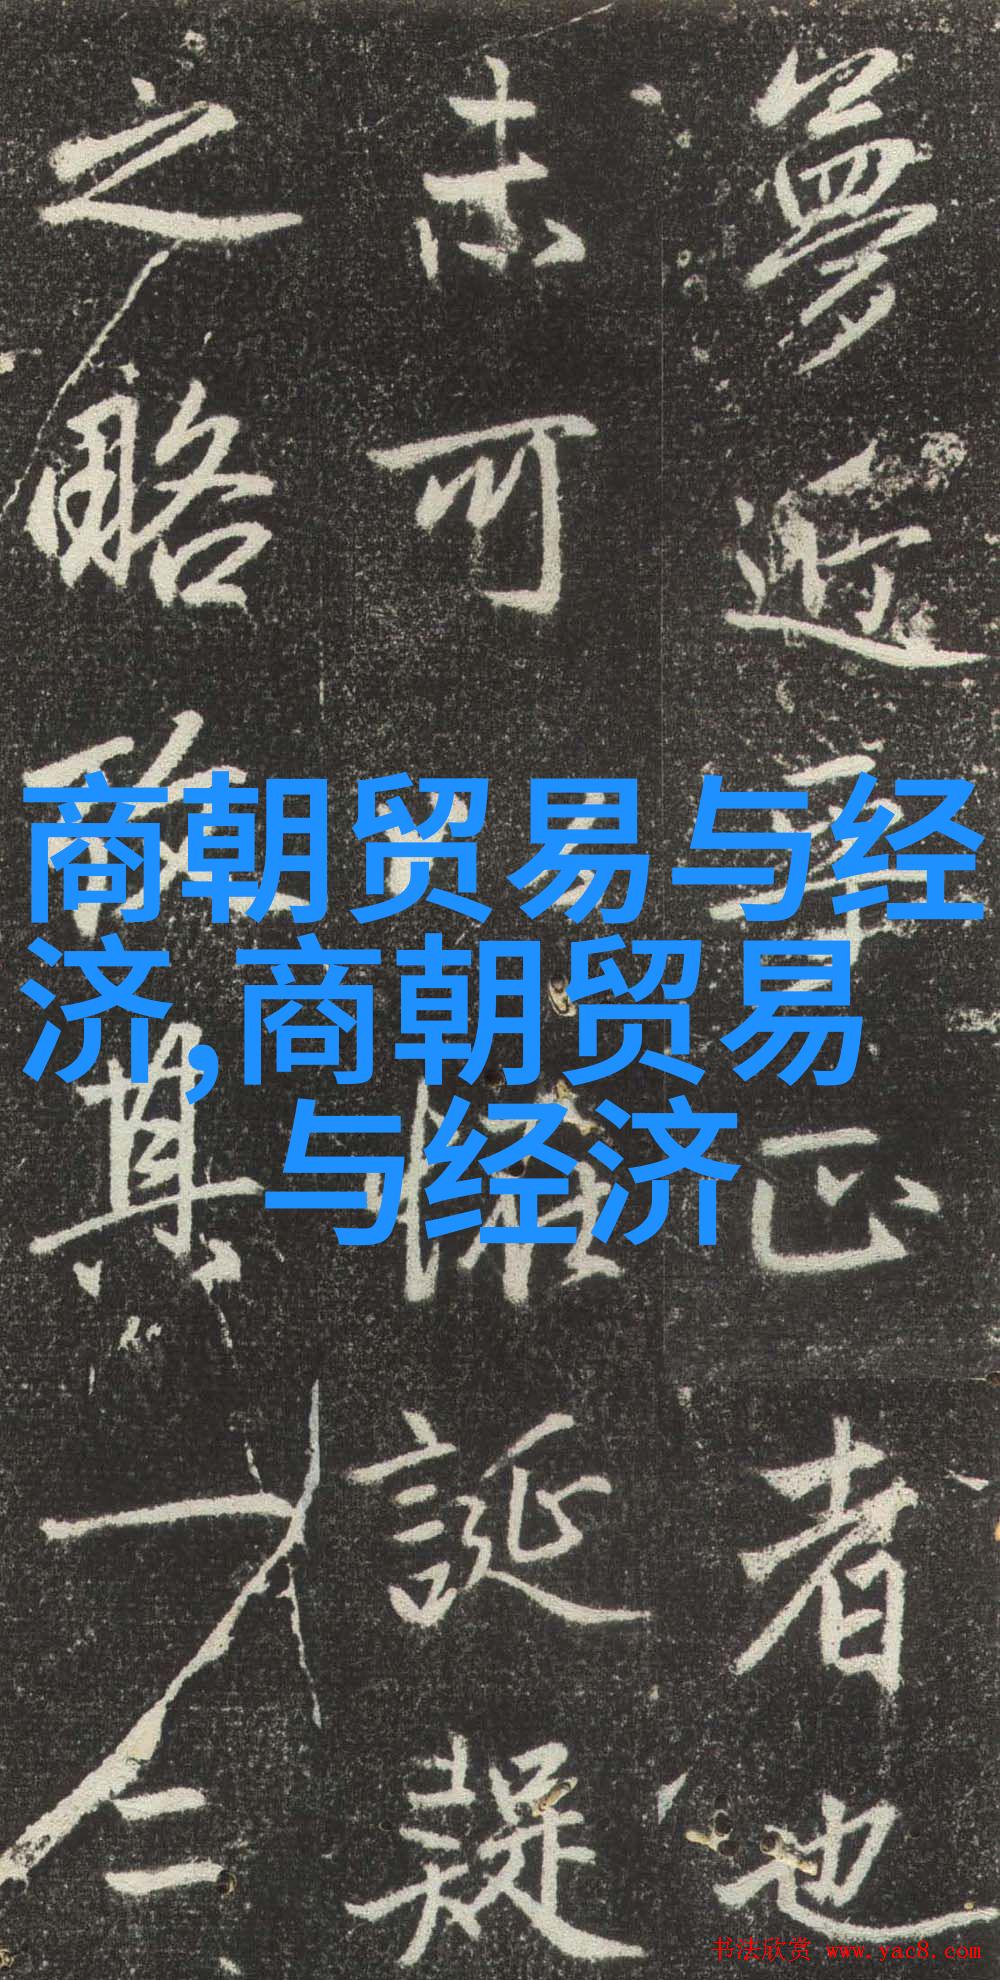 商朝贸易与经
济,商朝贸易
与经济
夢近正者也
可誕疑
之略其一二
书法欣赏 www.yac8.com